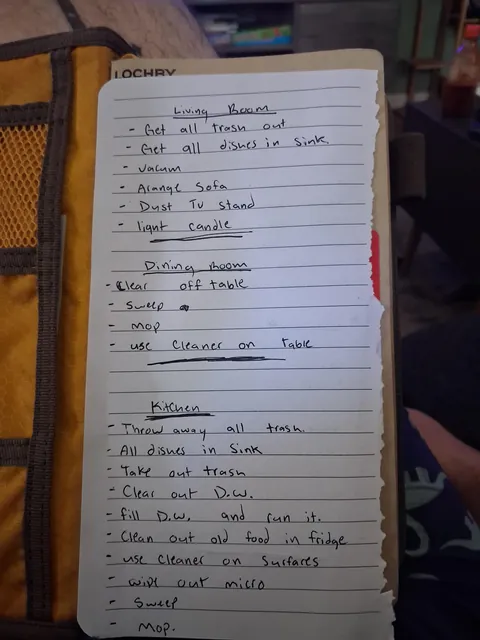 LOCHBY
Living Room
- Get all trash out
- Get all dishes in sink
- vacum
- Arange Sofa
- Dust TV stand
- light candle
Dining Room
- Clear off table
- Sweep
- Mop
- use Cleaner on table
Kitchen
- Throw away all trash.
- All dishes in Sink
- Take out trash
- Clear out D.W.
- fill D.W. and run it.
- Clean out old food in fridge
- use cleaner on surfares
- wipe out micro
- Sweep
- Mop.